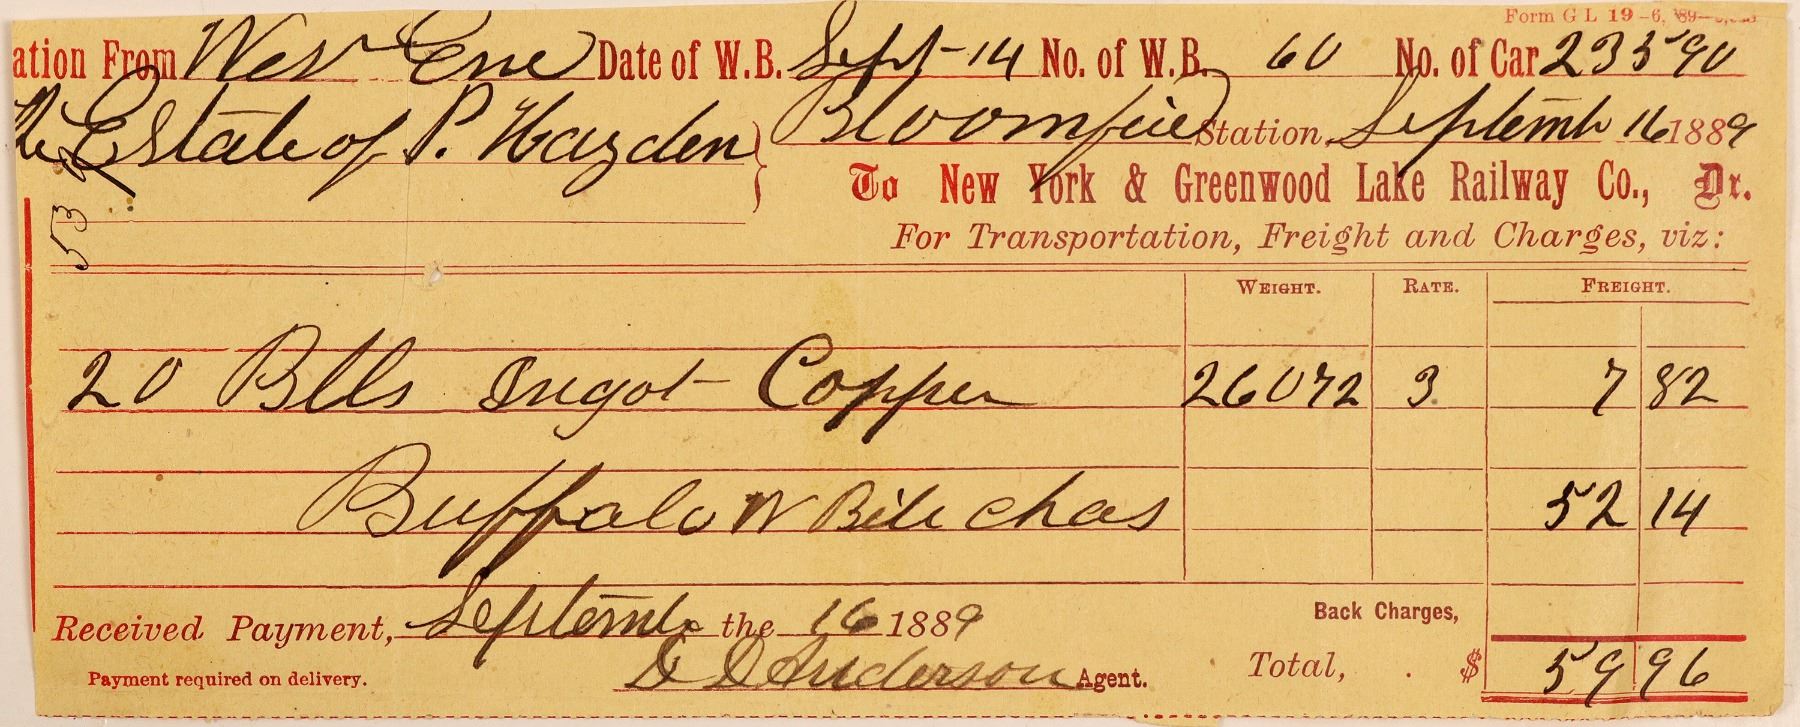 Form G L 19-6, '89
ation From West End Date of W.B. Sept 14 No. of W.B. 60 No. of Car 23590
The Estate of P. Hayden } Bloomfield Station, Septemb 16 1889
53
To New York & Greenwood Lake Railway Co., Dr.
For Transportation, Freight and Charges, viz:
WEIGHT. RATE. FREIGHT.
20 Blls Ingot Copper 26072 3 7 82
Buffalo W Bill chas 52 14
Received Payment, Septemb the 16 1889 Back Charges,
Payment required on delivery. D D Anderson Agent. Total, . $ 59 96